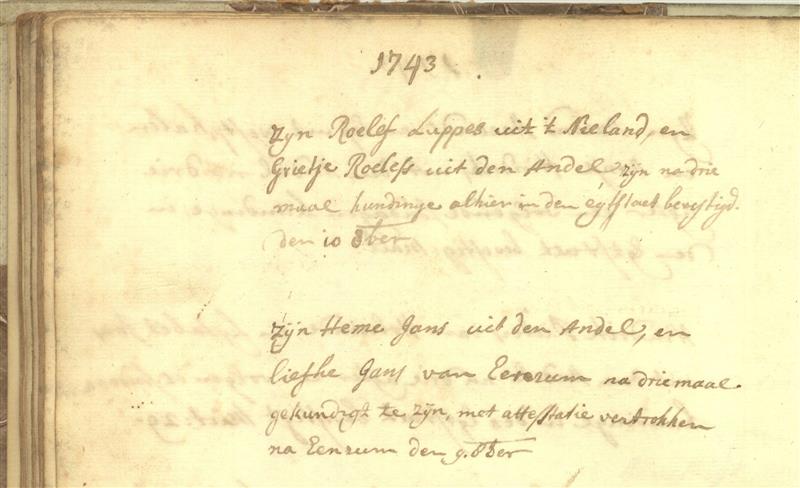 1743
Zijn Roelef Luppes uit 't Nieland, en
Grietje Roelefs uit den Andel zijn na drie
maal kundinge alhier in den egtstaet bevestigd.
den 10 8ber
Zijn Heme Jans uit den Andel, en
liefke Jans van Eenrum na driemaal
gekundigt te zijn, met attestatie vertrokken
na Eenrum den 9. 8ber